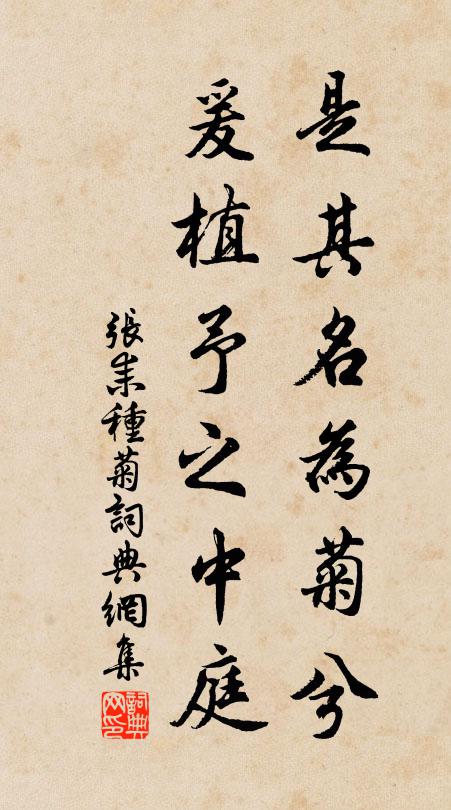 是其名為菊兮
爰植予之中庭
張耒種菊詞典網集
詞典网印